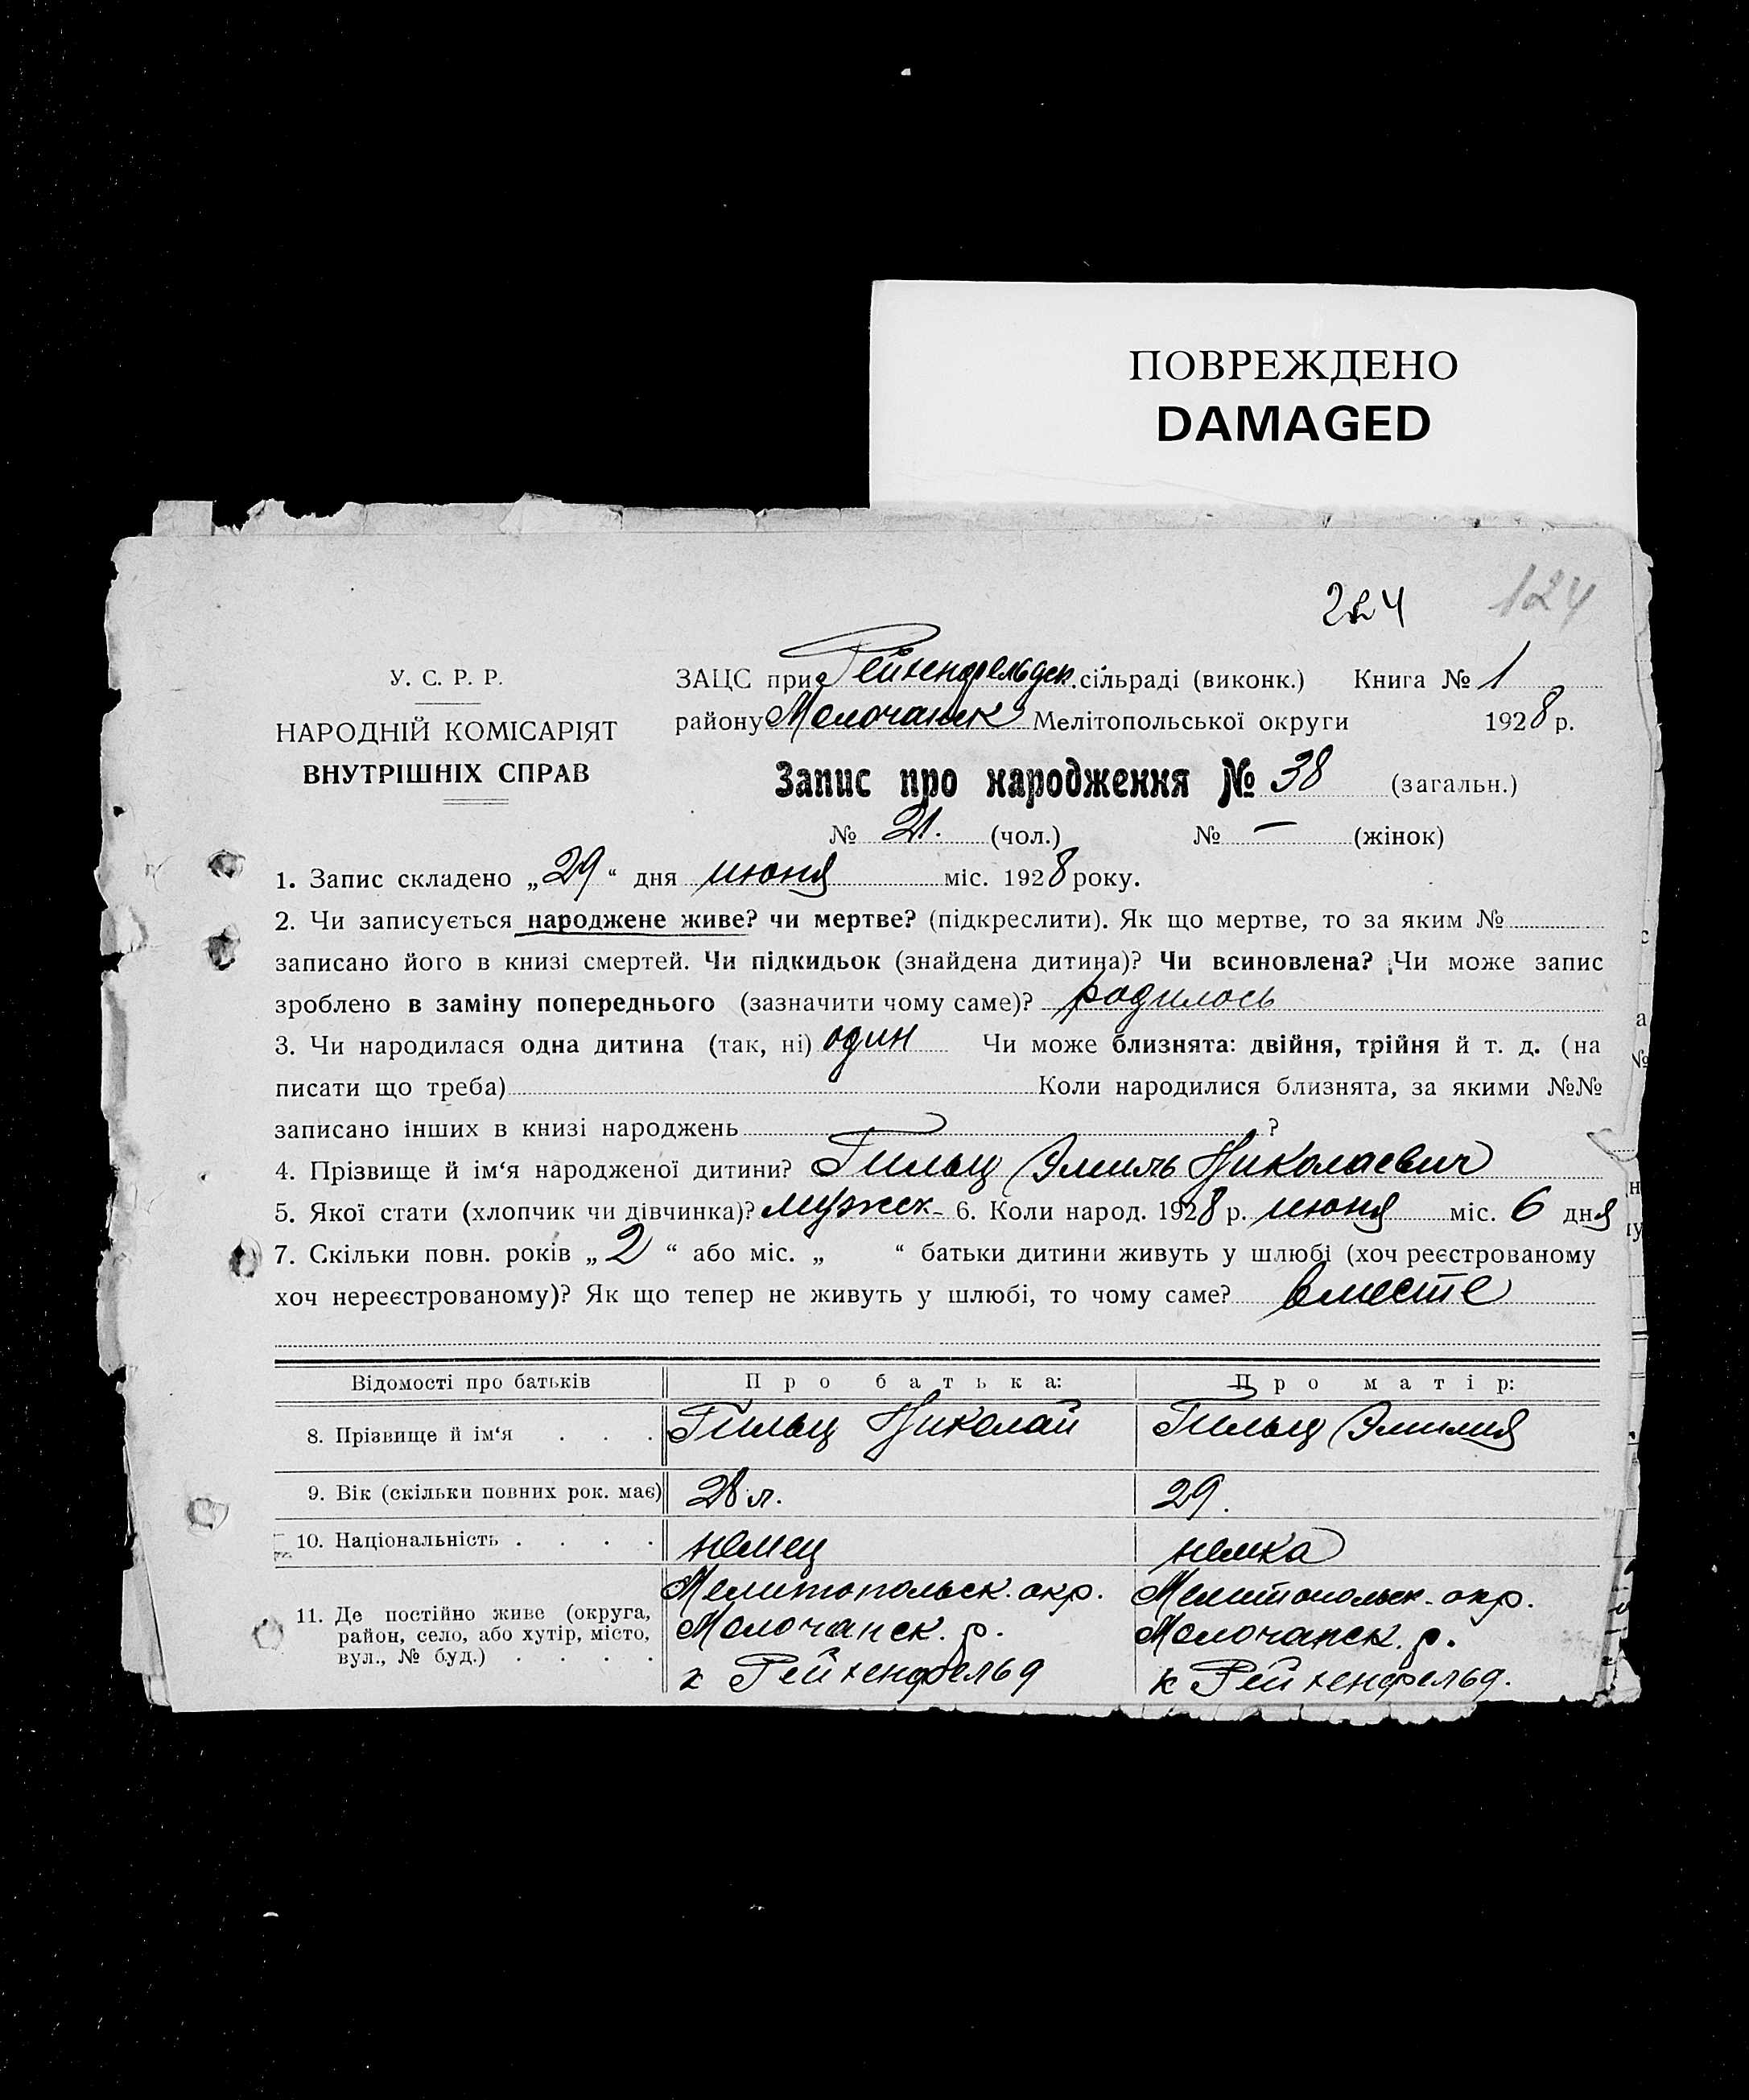 ПОВРЕЖДЕНО
DAMAGED
224 124
У. С. Р. Р.
НАРОДНІЙ КОМІСАРІЯТ
ВНУТРІШНІХ СПРАВ
ЗАЦС при Рейхенфельдск. сільраді (виконк.) Книга № 1
району Молочанск Мелітопольської округи 1928 р.
Запис про народження № 38 (загальн.)
№ 21. (чол.) № — (жінок)
1. Запис складено „29“ дня июня міс. 1928 року.
2. Чи записується народжене живе? чи мертве? (підкреслити). Як що мертве, то за яким №
записано його в книзі смертей. Чи підкидьок (знайдена дитина)? Чи всиновлена? Чи може запис
зроблено в заміну попереднього (зазначити чому саме)? родилось
3. Чи народилася одна дитина (так, ні) один Чи може близнята: двійня, трійня й т. д. (на
писати що треба) Коли народилися близнята, за якими №№
записано інших в книзі народжень ?
4. Прізвище й ім‘я народженої дитини? Гильц Эмиль Николаевич
5. Якої стати (хлопчик чи дівчинка)? мужск- 6. Коли народ. 1928 р. июня міс. 6 дня
7. Скільки повн. років „2“ або міс. „ “ батьки дитини живуть у шлюбі (хоч реєстрованому
хоч нереєстрованому)? Як що тепер не живуть у шлюбі, то чому саме? вместе
Відомості про батьків Про батька: Про матір:
8. Прізвище й ім‘я . . . Гильц Николай Гильц Эмилия
9. Вік (скільки повних рок. має) 28 л. 29.
10. Національність . . . . немец немка
11. Де постійно живе (округа, район, село, або хутір, місто, вул., № буд.) . . . .
Мелитопольск. окр. Мелитопольск. окр.
Молочанск. р. Молочанск. р.
к Рейхенфельд к Рейхенфельд.